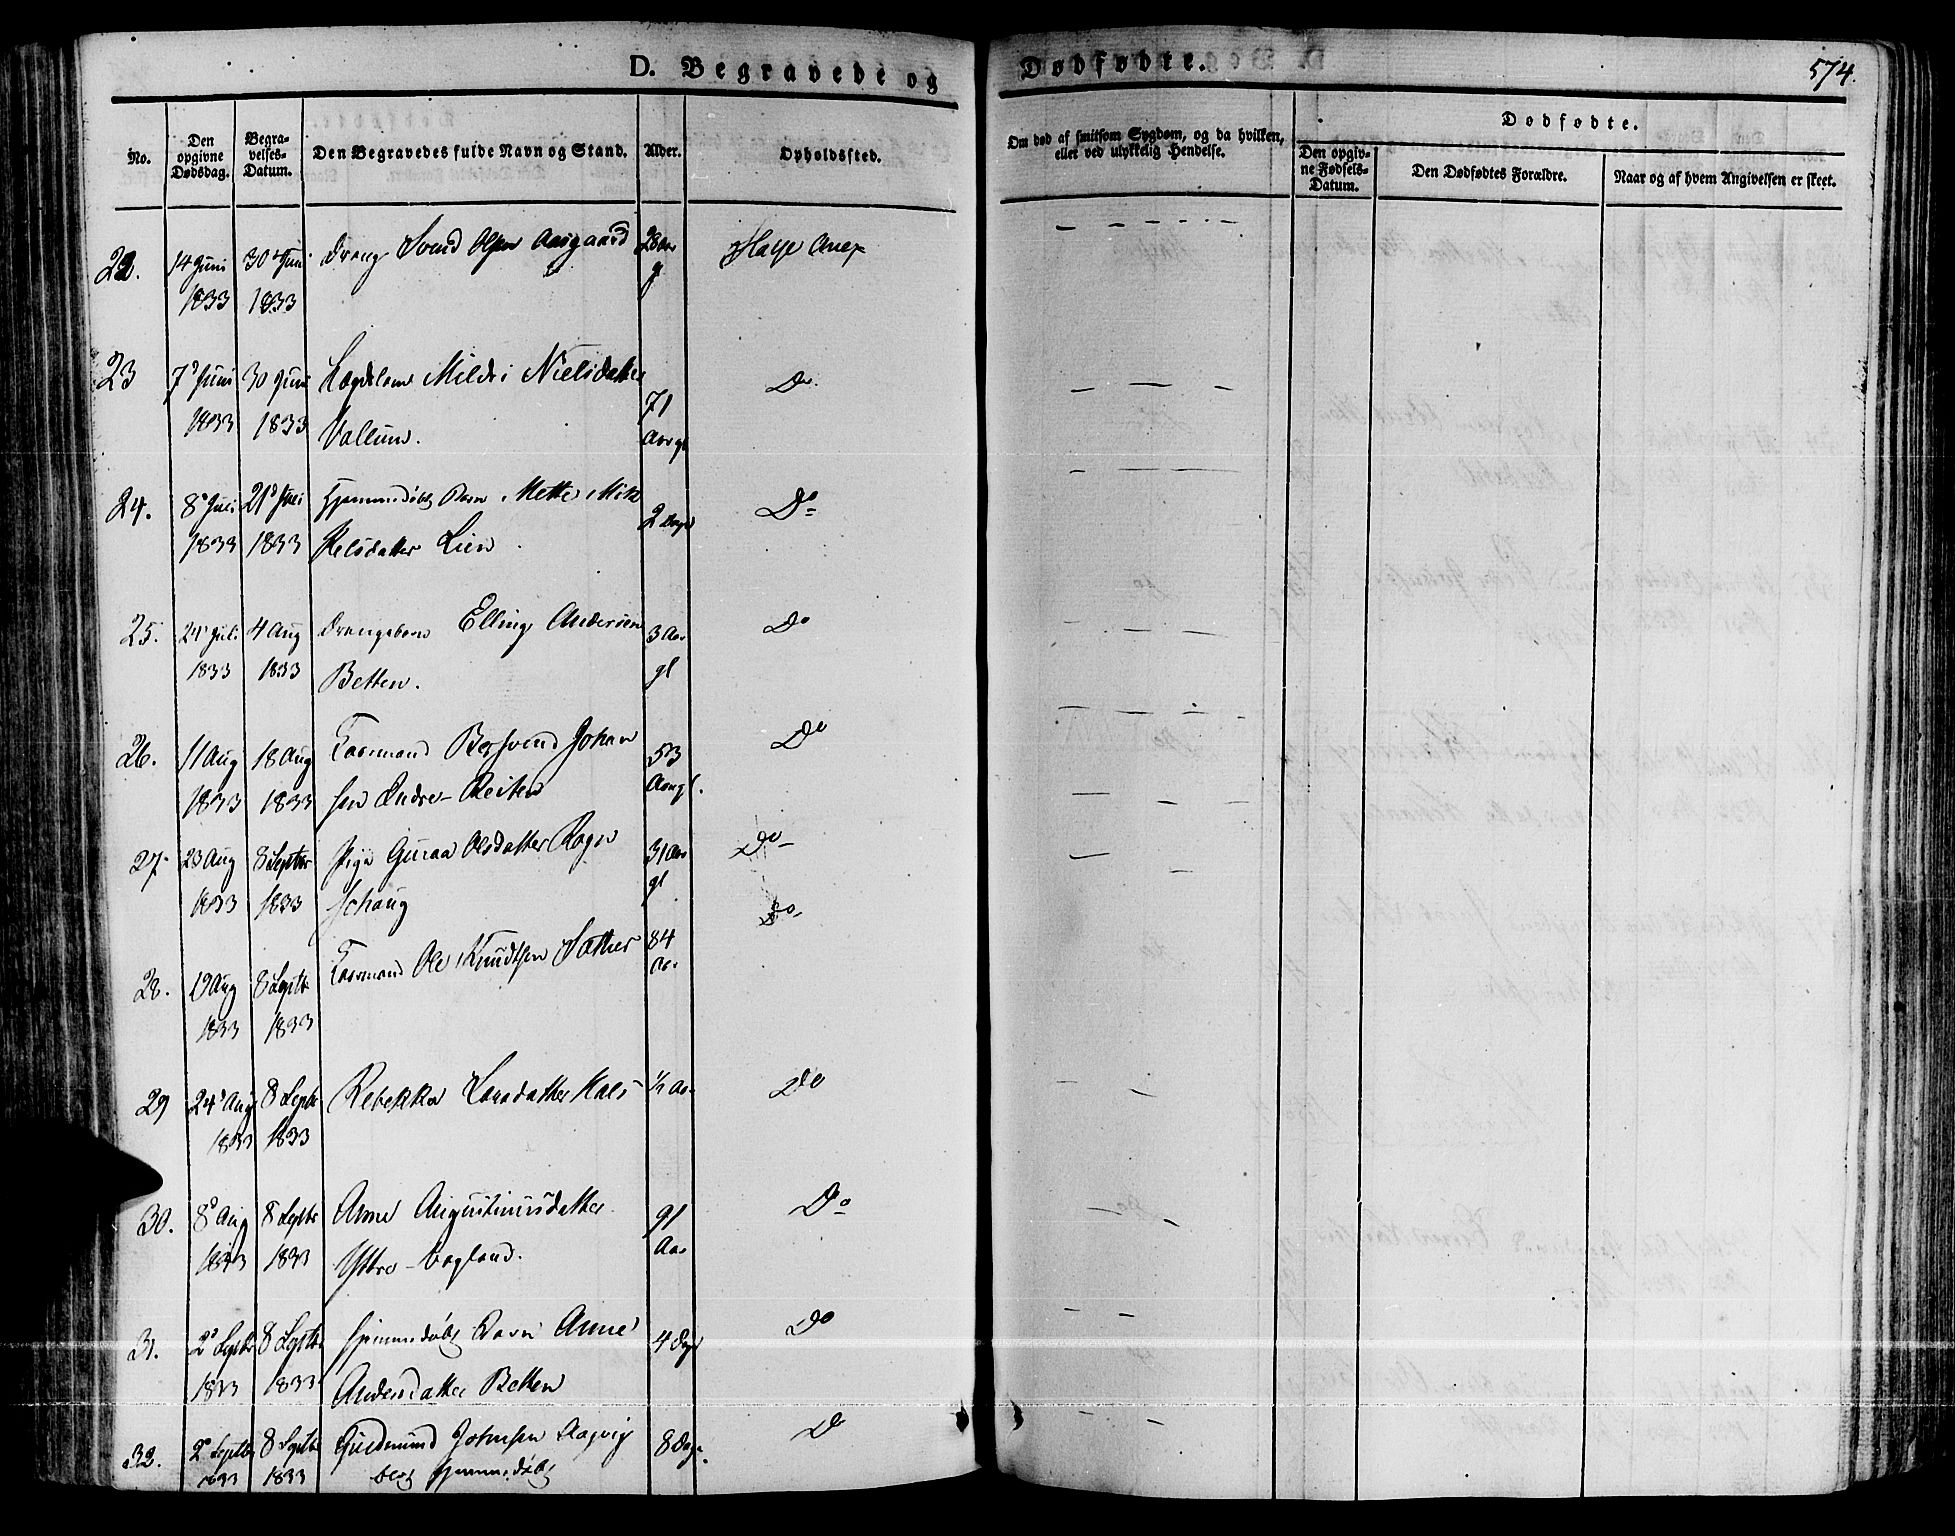 D. Begravede og Dødfødte.
574.
No.
Den opgivne Dødsdag.
Begravelses-Datum.
Den Begravedes fulde Navn og Stand.
Alder.
Opholdssted.
Om død af smitsom Sygdom, og da hvilken, eller ved ulykkelig Hendelse.
Dødfødte.
Den opgivne Fødsels-Datum.
Den Dødfødtes Forældre.
Naar og af hvem Angivelsen er skeet.
22. 14 Juni 30 Juni Dreng Svend Olsen Aasgaard 28 Aar
1833 1833 gl
23 7 Juni 30 Juni Mildri Nielsdatter
1833 1833 Vallum. 71 Aar gl
24. 8 Juli 21 Juli Hjemmedøbt Barn Mette Mik 2 Dage Do
1833 1833 kelsdatter Lien.
25. 24 Juli 4 Aug Drengebarn Elling Andersen 3 Aar Do
1833 1833 Betten. gl
26. 11 Aug 18 Aug Kaarmand Bersvend Johan 53 Do
1833 1833 sen Øndre-Reiten Aar gl.
27 23 Aug 8 Septbr Pige Guraa Olsdatter Rogn 31 Aar Do
1833 1833 schoug gl
28. 19 Aug 8 Septbr Kaarmand Ole Knudtsen Sæther 84 Do
1833 1833 Aar
29 24 Aug 8 Septbr Rebekka Larsdatter ½ Aar Do
1833 1833
30. 8 Aug 8 Septbr Anne Augustinusdatter 91 Do
1833 1833 Yttre-Vagland. Aar
31. 2 Septbr 8 Septbr Hjemmedøbt Barn Anne 4 Dage Do
1833 1833 Andersdatter Betten
32. 2 Septbr 8 Septbr Gudmund Johnsen 8 Dage Do
1833 1833 berg hjemmedøbt